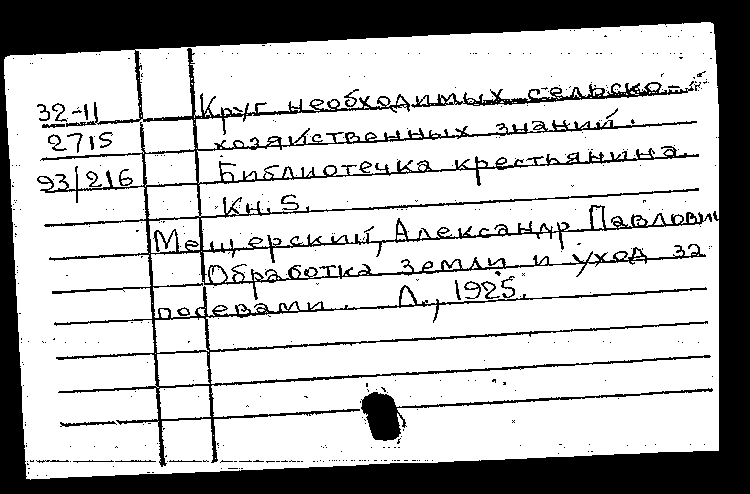 32-11
2715
93/216
Круг необходимых сельско-
хозяйственных знаний.
Библиотечка крестьянина.
Кн. 5.
Мещерский, Александр Павлович
Обработка земли и уход за
посевами. Л., 1925.